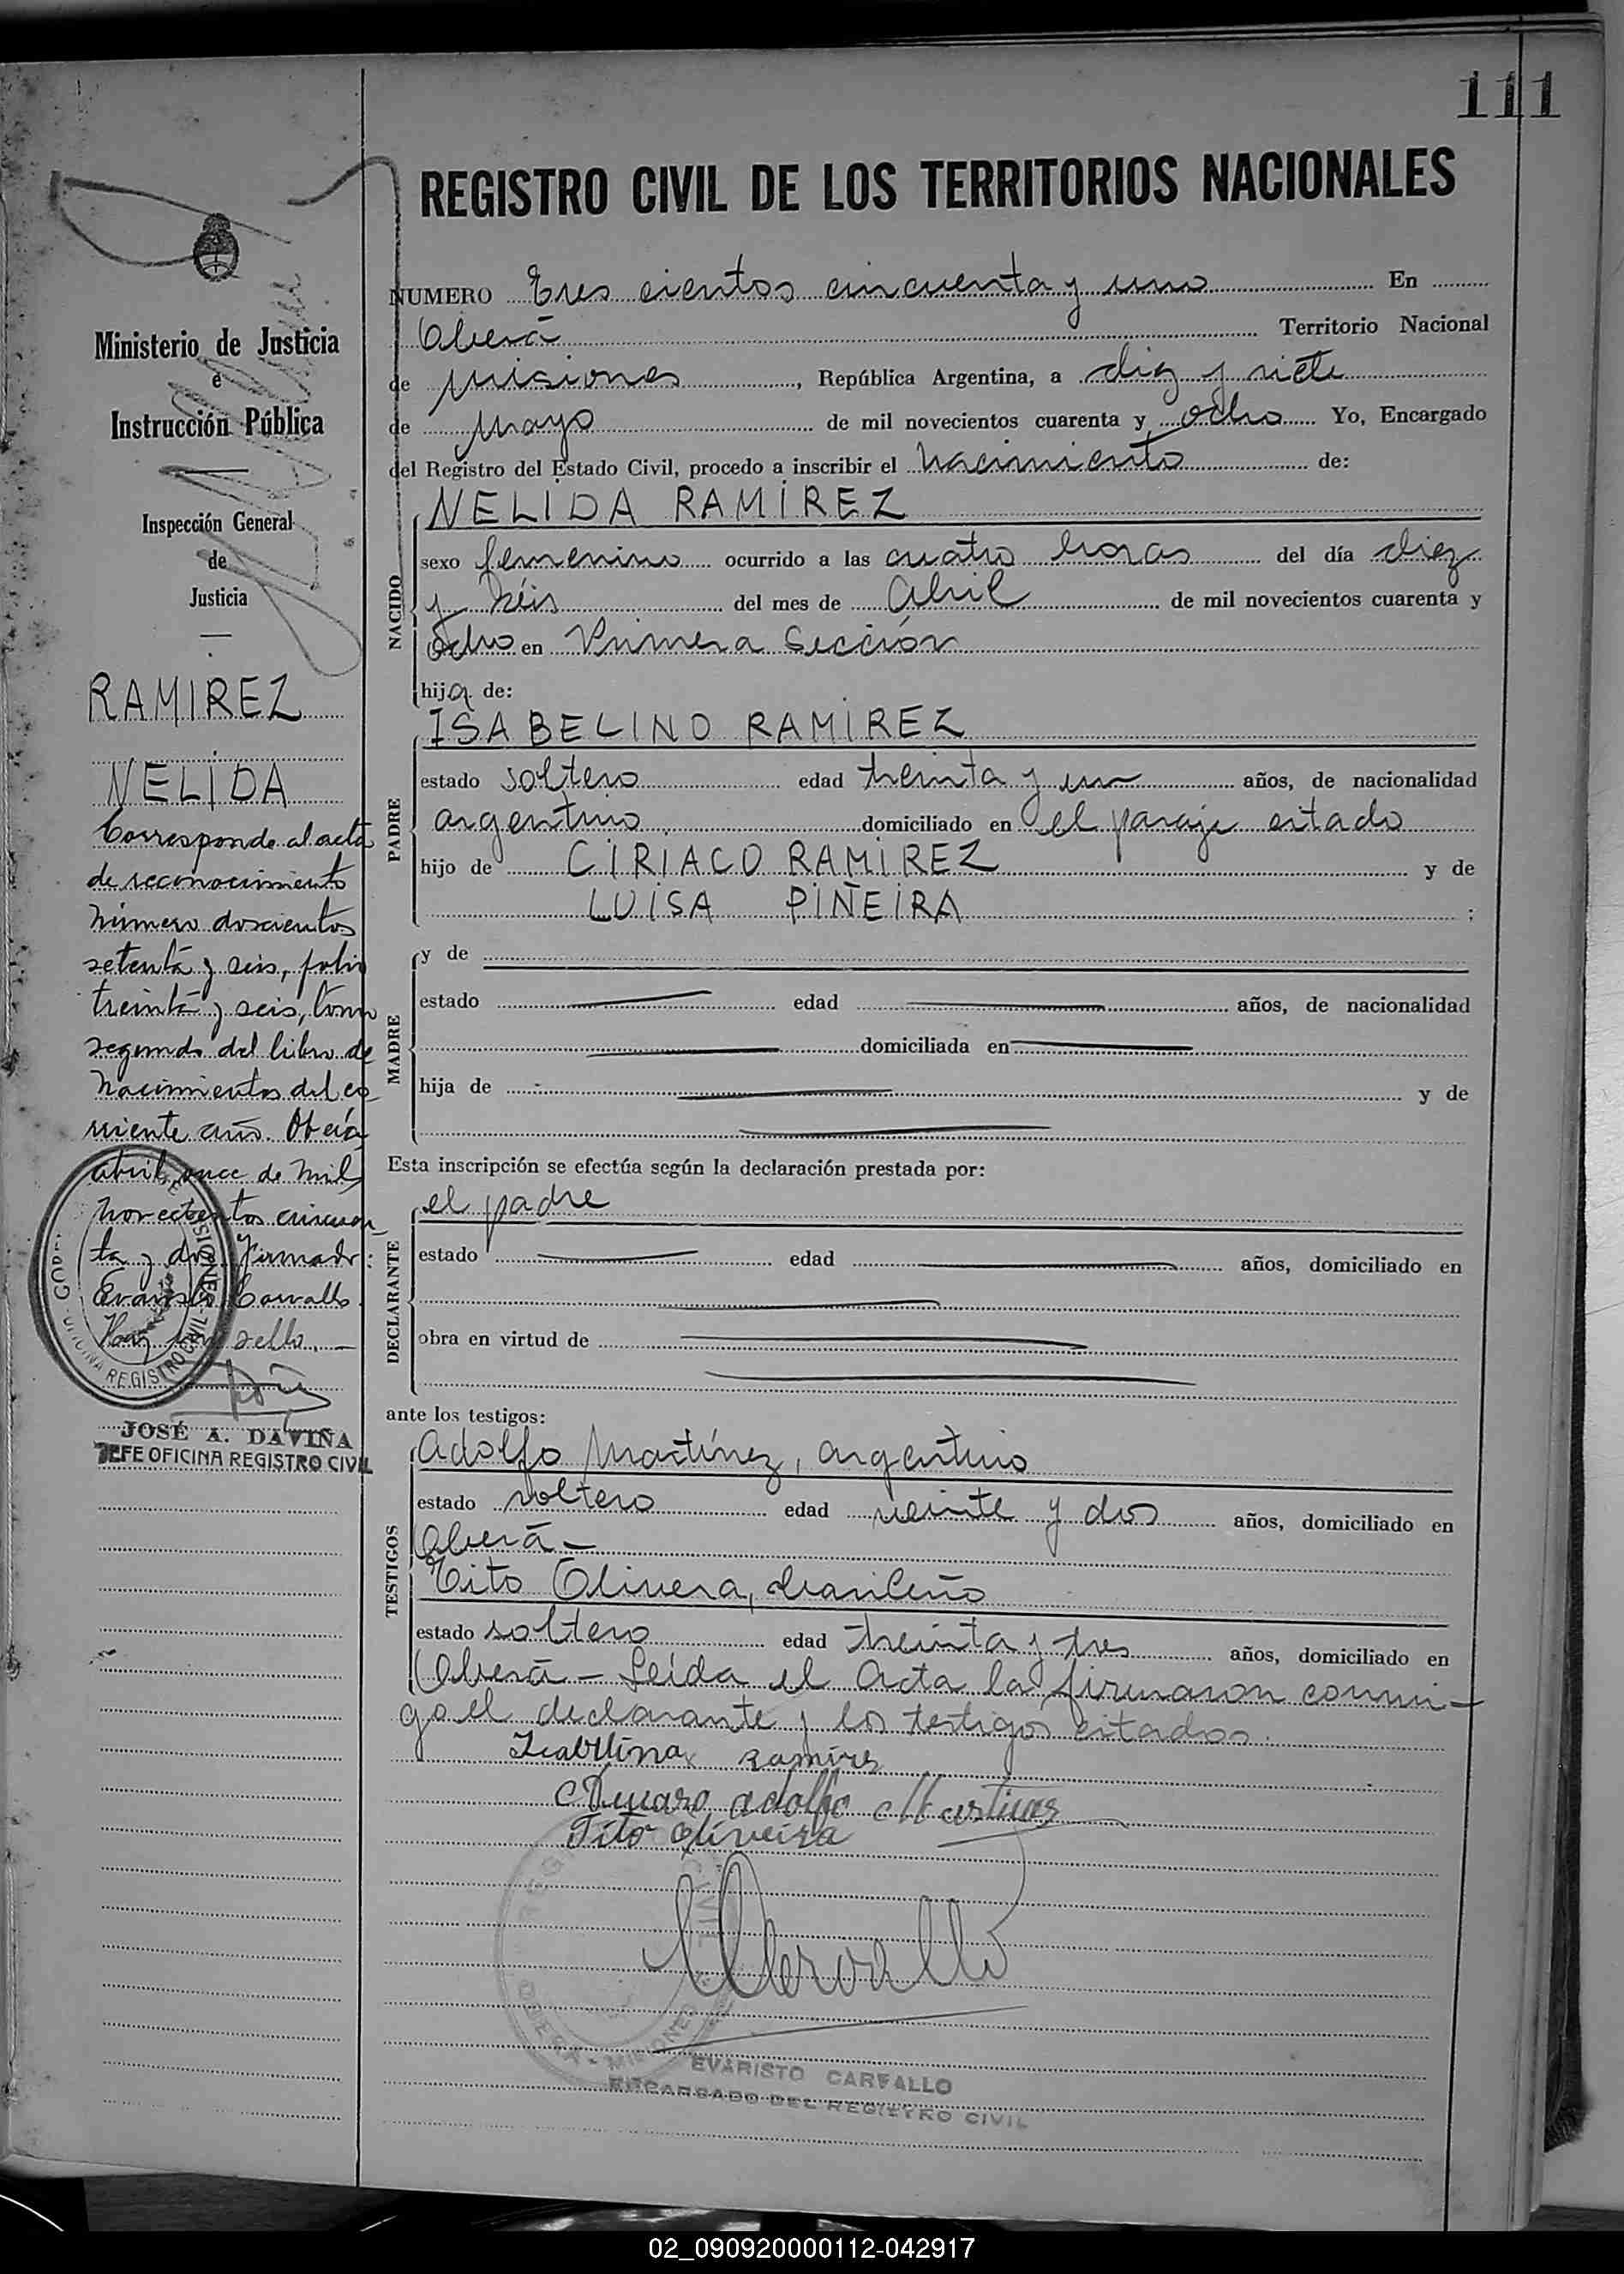 111
REGISTRO CIVIL DE LOS TERRITORIOS NACIONALES
Ministerio de Justicia
e
Instrucción Pública
Inspección General
de
Justicia
RAMIREZ
NELIDA
Corresponde al acta
de reconocimiento
número doscientos
setenta y seis, folio
treinta y seis, tomo
segundo del libro de
nacimientos del co
rriente año. Oberá
abril once de mil
novecientos cincuen
ta y dos Firmado:
Evaristo Carvallo.
Hay un sello.-
JOSÉ A. DAVIÑA
JEFE OFICINA REGISTRO CIVIL
NUMERO Tres cientos cincuenta y uno En
Oberá Territorio Nacional
de Misiones, República Argentina, a diez y siete
de Mayo de mil novecientos cuarenta y ocho Yo, Encargado
del Registro del Estado Civil, procedo a inscribir el nacimiento de:
NACIDO
NELIDA RAMIREZ
sexo femenino ocurrido a las cuatro horas del día diez
y séis del mes de Abril de mil novecientos cuarenta y
ocho en Primera Sección
hija de:
PADRE
ISABELINO RAMIREZ
estado soltero edad treinta y un años, de nacionalidad
argentino domiciliado en el paraje citado
hijo de CIRIACO RAMIREZ y de
LUISA PIÑEIRA ;
MADRE
y de
estado edad años, de nacionalidad
domiciliada en
hija de y de
Esta inscripción se efectúa según la declaración prestada por:
DECLARANTE
el padre
estado edad años, domiciliado en
obra en virtud de
ante los testigos:
TESTIGOS
Adolfo Martínez, argentino
estado soltero edad veinte y dos años, domiciliado en
Oberá-
Tito Olivera, brasileño
estado soltero edad treinta y tres años, domiciliado en
Oberá - Leída el Acta la firmaron conmi-
go el declarante y los testigos citados.
Ramires
Adolfo Martines
Tito Oliveira
EVARISTO CARVALLO
ENCARGADO DEL REGISTRO CIVIL
02_090920000112-042917